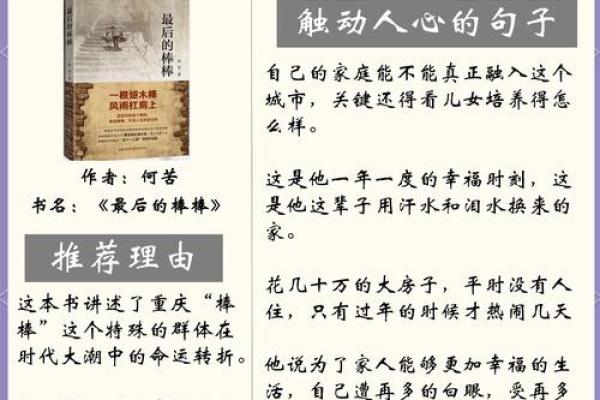 最后的棒棒
一根短木棒
风雨扛肩上
作者：何苦
书名：《最后的棒棒》
推荐理由
这本书讲述了重庆“棒
棒”这个特殊的群体在
时代大潮中的命运转折。
触动人心的句子
自己的家庭能不能真正融入这个
城市，关键还得看儿女培养得怎
么样。
这是他一年一度的幸福时刻，这
是他这辈子用汗水和泪水换来的
家。
花几十万的大房子，平时没有人
住，只有过年的时候才热闹几天
他说为了家人能够更加幸福的生
活，自己遭再多的白眼，受再多